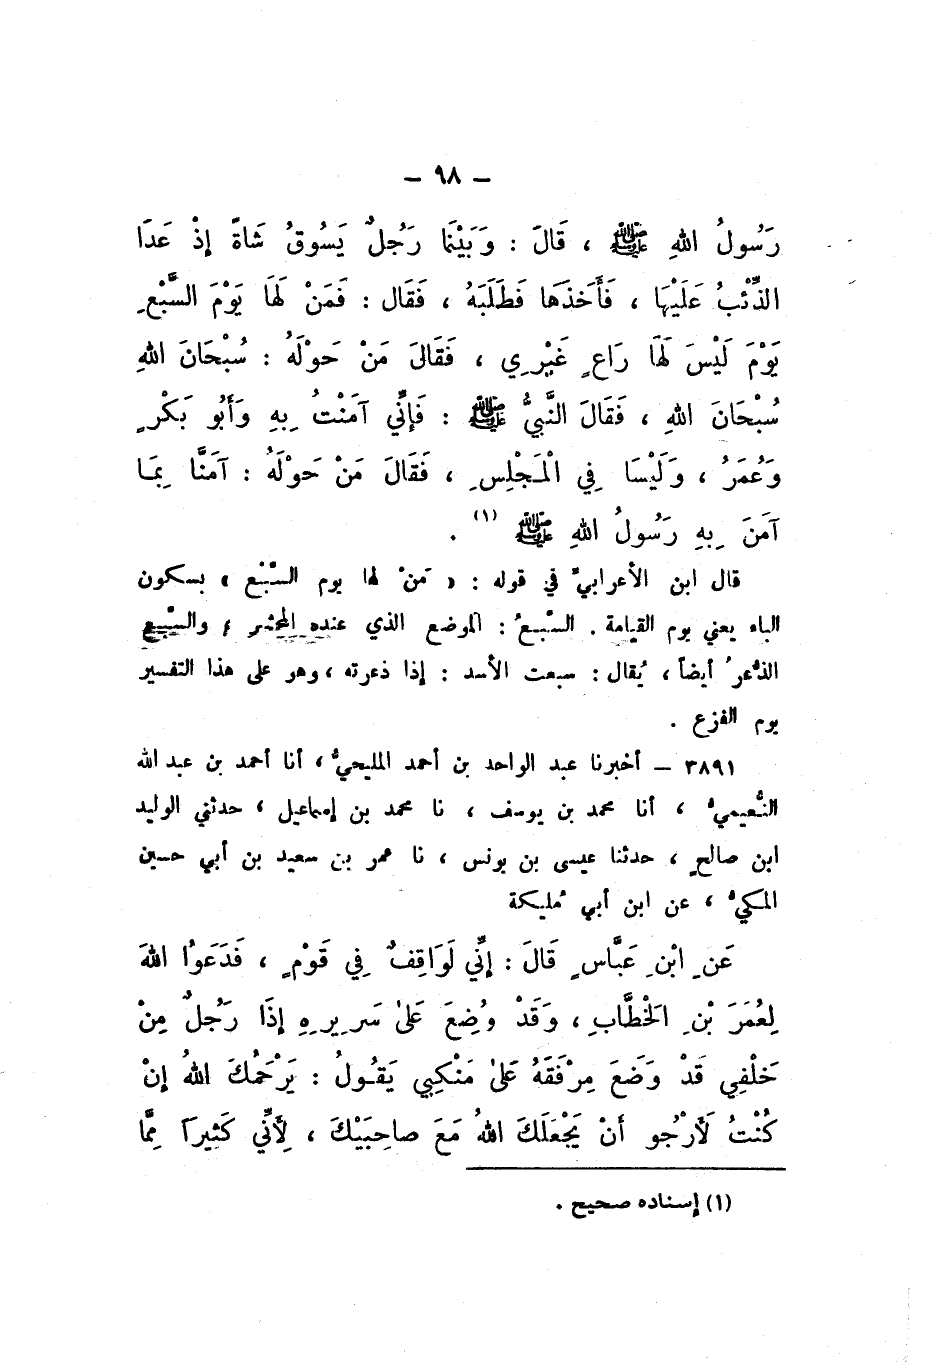 – ٩٨ –
رَسُولُ اللهِ ﷺ ، قَالَ : وَبَيْنَمَا رَجُلٌ يَسُوقُ شَاةً إِذْ عَدَا
الذِّئْبُ عَلَيْهَا ، فَأَخَذَهَا فَطَلَبَهُ ، فَقَال : فَمَنْ لَهَا يَوْمَ السَّبْعِ
يَوْمَ لَيْسَ لَهَا رَاعٍ غَيْرِي ، فَقَالَ مَنْ حَوْلَهُ : سُبْحَانَ اللهِ
سُبْحَانَ اللهِ ، فَقَالَ النَّبِيُّ ﷺ : فَإِنِّي آمَنْتُ بِهِ وَأَبُو بَكْرٍ
وَعُمَرُ ، وَلَيْسَا فِي الْمَجْلِسِ ، فَقَالَ مَنْ حَوْلَهُ : آمَنَّا بِمَا
آمَنَ بِهِ رَسُولُ اللهِ ﷺ (١) .
قال ابن الأعرابيّ في قوله : « مَنْ لها يوم السَّبْع » بسكون
الباء يعني يوم القيامة . السَّبعُ : الموضع الذي عنده المحشر ، والسَّبع
الذُّعرُ أيضاً ، يُقال : سبعت الأسد : إذا ذعرته ، وهو على هذا التفسير
يوم الفزع .
٣٨٩١ – أخبرنا عبد الواحد بن أحمد المليحيُّ ، أنا أحمد بن عبد الله
النُّعيميُّ ، أنا محمد بن يوسف ، نا محمد بن إسماعيل ، حدثني الوليد
ابن صالحٍ ، حدثنا عيسى بن يونس ، نا عمر بن سعيد بن أبي حسين
المكيُّ ، عن ابن أبي مُليكة
عَنِ ابْنِ عَبَّاسٍ قَالَ : إِنِّي لَوَاقِفٌ فِي قَوْمٍ ، فَدَعَوُا اللهَ
لِعُمَرَ بْنِ الخْطَّابِ ، وَقَدْ وُضِعَ عَلَىٰ سَرِيرِهِ إِذَا رَجُلٌ مِنْ
خَلْفِي قَدْ وَضَعَ مِرْفَقَهُ عَلَىٰ مَنْكِبِي يَقُولُ : يَرْحَمُكَ اللهُ إِنْ
كُنْتُ لَأَرْجُو أَنْ يَجْعَلَكَ اللهُ مَعَ صاحِبَيْكَ ، لِأَنِّي كَثِيراً مِمَّا
(١) إسناده صحيح .